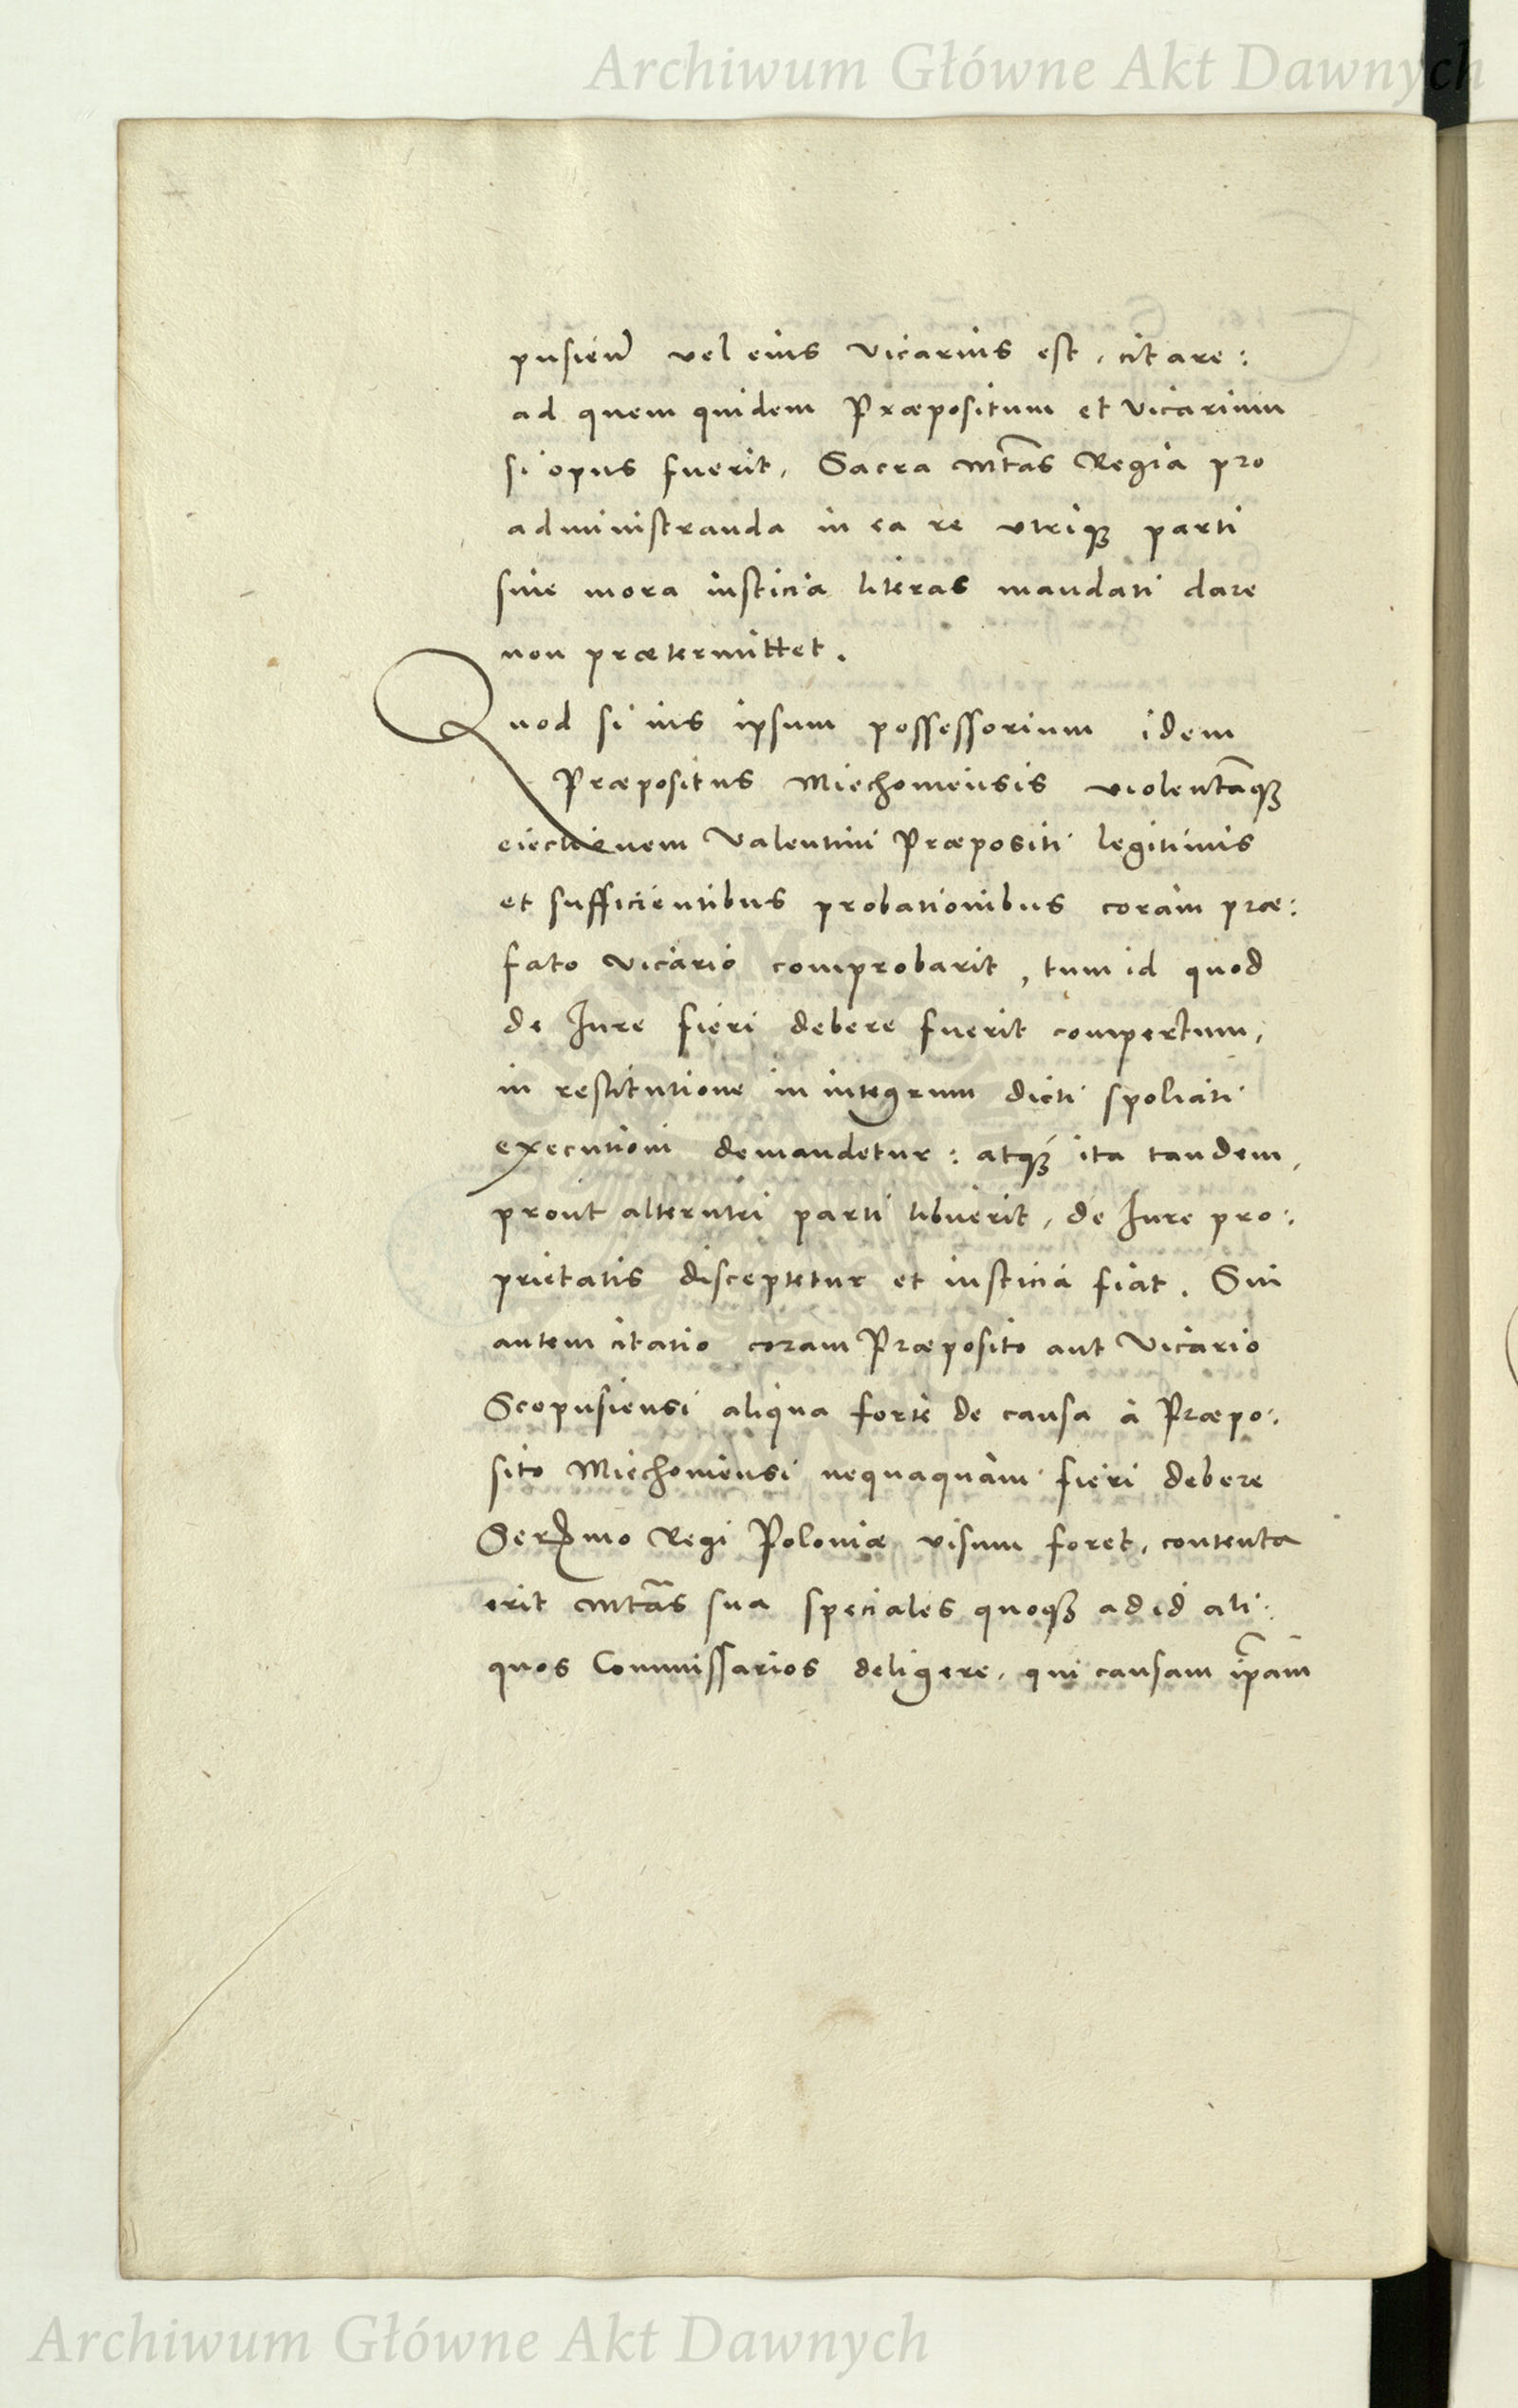 Archiwum Główne Akt Dawnych
pusien̄ vel eius vicarius est, citare:
ad quem quidem Præpositum et vicarium
si opus fuerit, Sacra Mt̄as Regia pro
administranda in ea re vtriqȝ parti
sine mora iusticia literas mandati dare
non prætermittet.
Quod si ius ipsum possessorium idem
Præpositus Miechouiensis violentāqȝ
eiectionem Valentini Præpositi legitimis
et sufficientibus probationibus coram præ:
fato vicario comprobarit, tum id quod
de Jure fieri debere fuerit compertum,
in restitutione in integrum dicti spoliati
executioni demandetur: atqȝ ita tandem,
prout alterutri parti libuerit, de Jure pro:
prietatis disceptetur et iusticia fiat. Sin
autem citatio coram Præposito aut Vicario
Scepusiensi aliqua forte de causa à Præpo:
sito Miechouiensi nequaquam fieri debere
Serᵐᵒ Regi Poloniæ visum foret, contenta
erit Mtās sua speciales quoqȝ ad id ali:
quos Commissarios deligere, qui causam ip̄am
Archiwum Główne Akt Dawnych